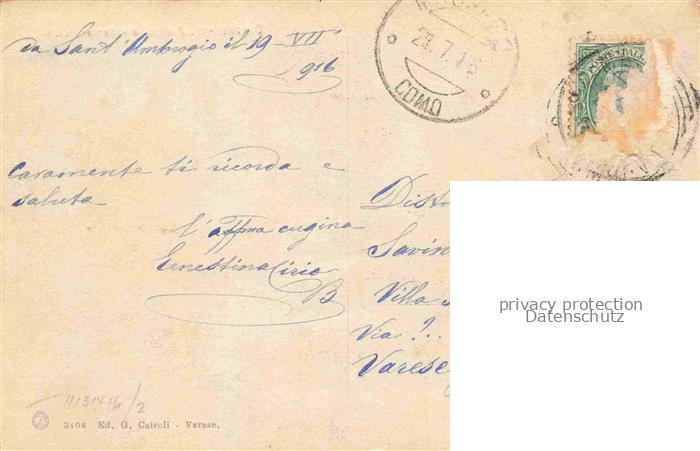 da Sant'Ambrogio il 19-VII
916
COMO
POSTE ITALIANE
caramente ti ricorda e
saluta
l'affma cugina
Ernestina Cirio
B
Dist
Savin
Villa
Via ?..
Varese
privacy protection
Datenschutz
1131416/2
3406 Ed. G. Cairoli - Varese.